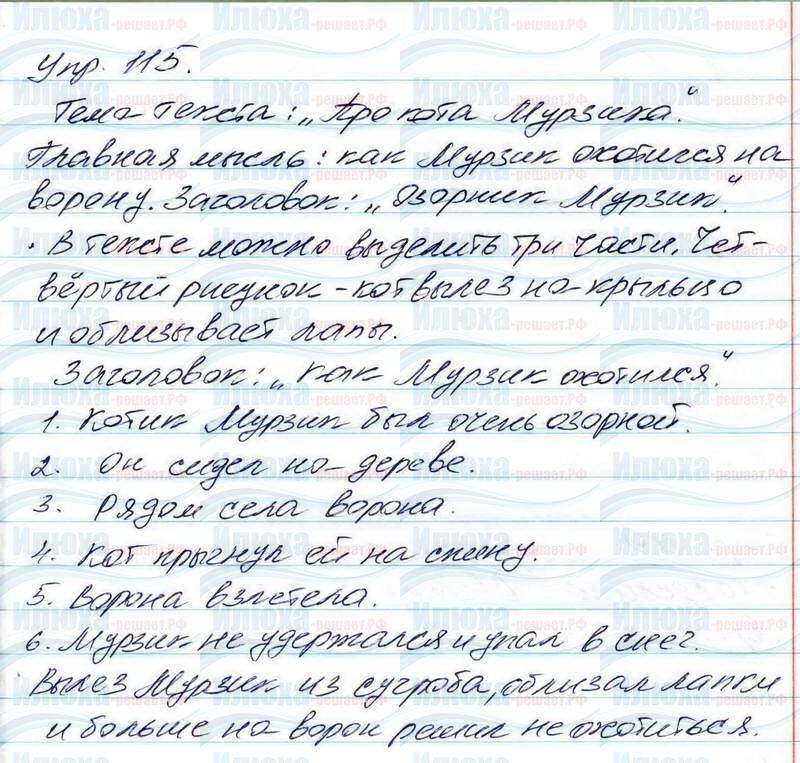 Упр. 115.
Тема текста: „Про кота Мурзика".
Главная мысль: как Мурзик охотился на
ворону. Заголовок: „Озорник Мурзик".
В тексте можно выделить три части. Чет-
вёртый рисунок - кот вылез на крыльцо
и облизывает лапы.
Заголовок: „Как Мурзик охотился".
1. Котик Мурзик был очень озорной.
2. Он сидел на дереве.
3. Рядом села ворона.
4. Кот прыгнул ей на спину.
5. Ворона взлетела.
6. Мурзик не удержался и упал в снег.
Вылез Мурзик из сугроба, облизал лапки
и больше на ворон решил не охотиться.
Илюха-решает.РФ